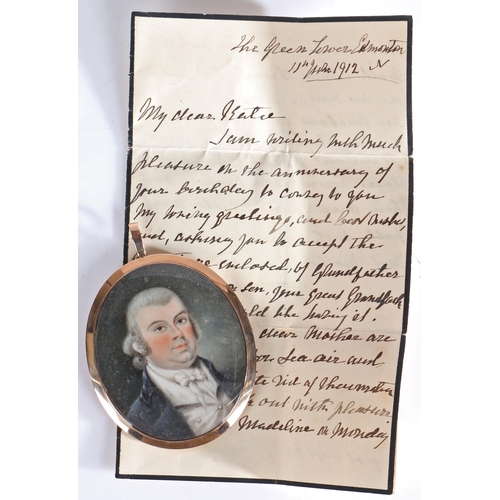 The Green Tower Edmonton
11th June 1912 N
My dear Katie
I am writing with much
pleasure on the anniversary of
your birthday to convey to you
my loving greetings, and best wishes,
and, asking you to accept the
enclosed, of Grandfather
son, your Great Grandfath
ld like having it.
dear Mother are
Sea air and
rid of
out with pleasure
Madeline on Monday